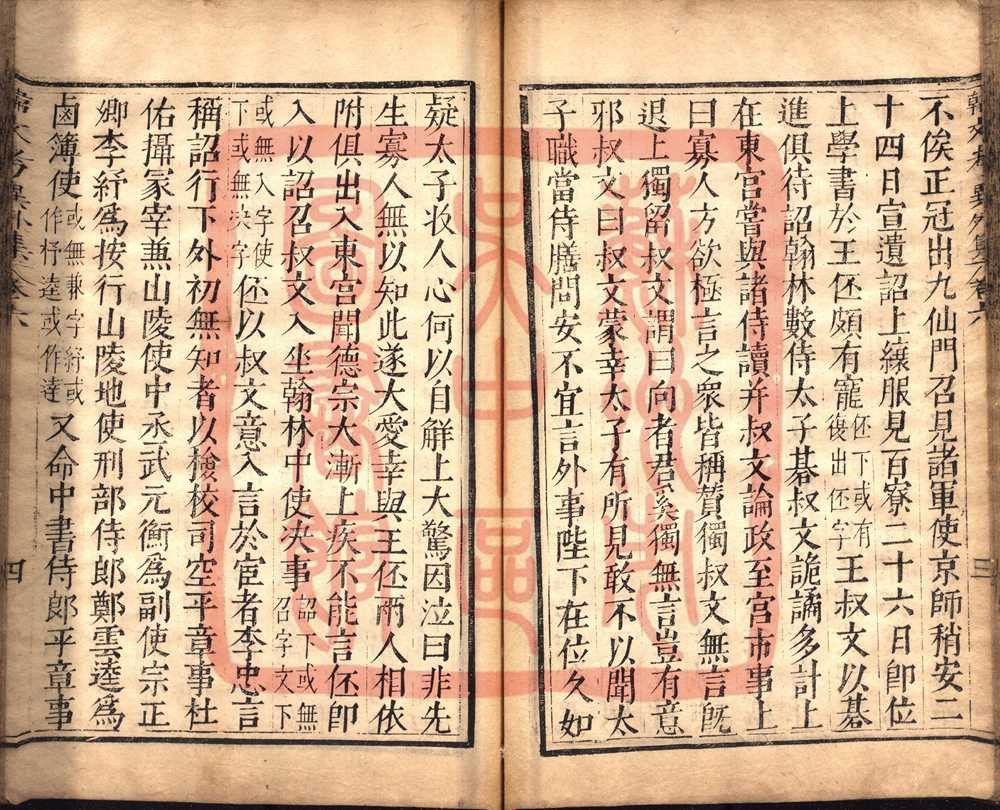 不俟正冠出九仙門召見諸軍使京師稍安二
十四日宣遺詔上縗服見百寮二十六日即位
上學書於王伾頗有寵伾下或有復出伾字王叔文以碁
進俱待詔翰林數侍太子碁叔文詭譎多計上
在東宮嘗與諸侍讀并叔文論政至宮市事上
曰寡人方欲極言之衆皆稱贊獨叔文無言旣
退上獨留叔文謂曰向者君奚獨無言豈有意
邪叔文曰叔文蒙幸太子有所見敢不以聞太
子職當侍膳問安不宜言外事陛下在位久如
三
疑太子收人心何以自解上大驚因泣曰非先
生寡人無以知此遂大愛幸與王伾兩人相依
附俱出入東宮聞德宗大漸上疾不能言伾即
入以詔召叔文入坐翰林中使决事詔下或無召字文下
或無入字使下或無决字伾以叔文意入言於宦者李忠言
稱詔行下外初無知者以檢校司空平章事杜
佑攝冢宰兼山陵使中丞武元衡爲副使宗正
卿李紓爲按行山陵地使刑部侍郎鄭雲逵爲
鹵簿使或無兼字紓或作杼逵或作逹又命中書侍郎平章事
四